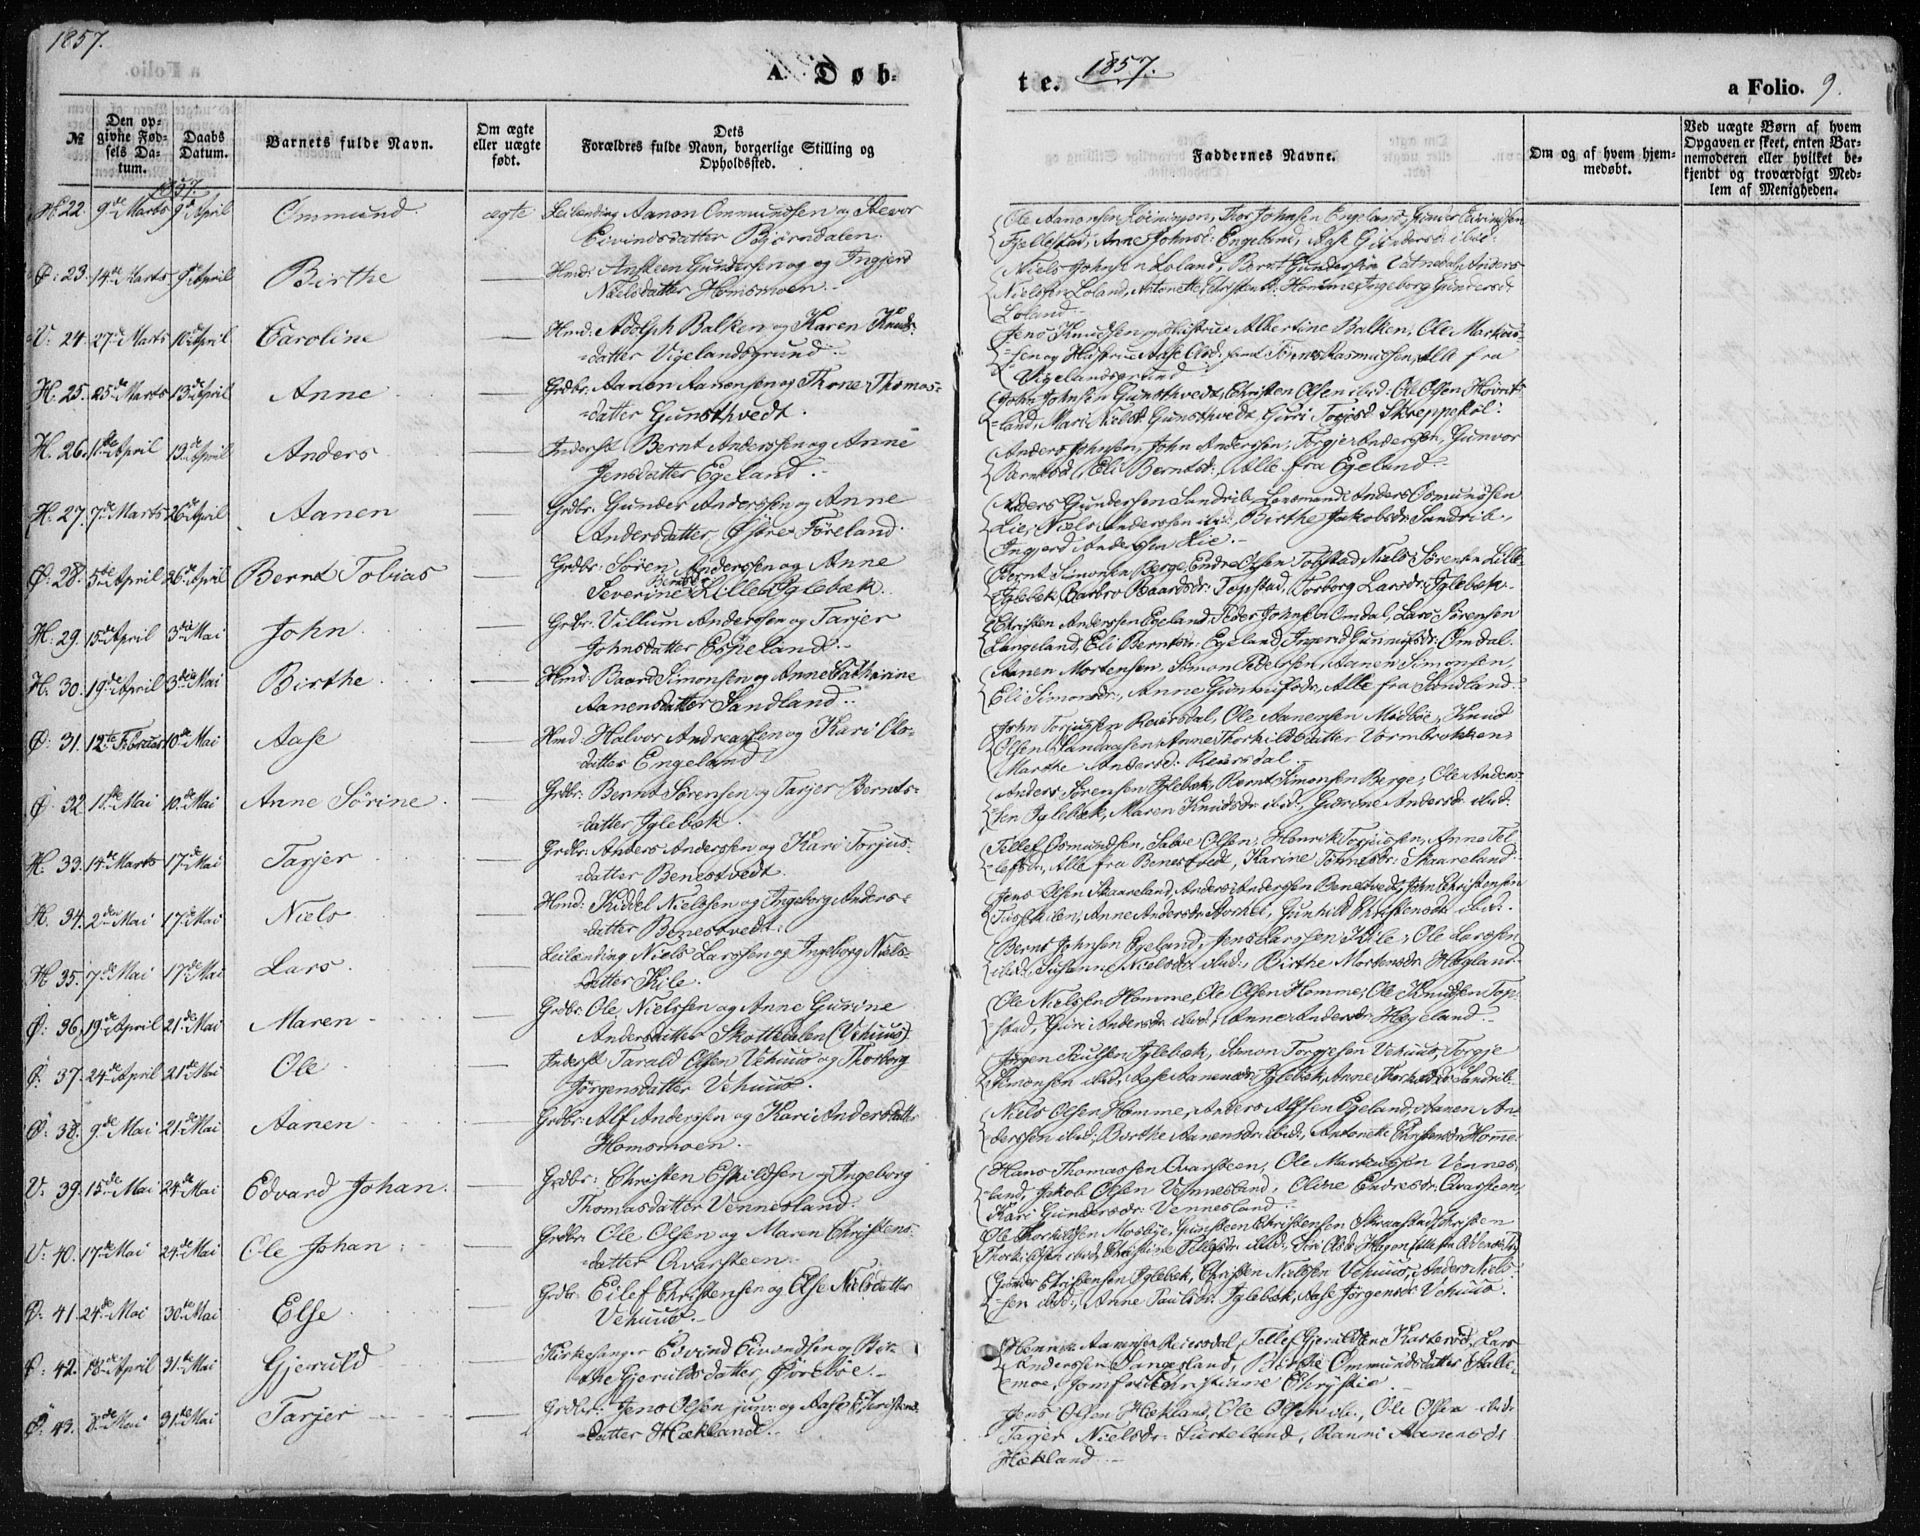 1857.
A. Døb-
te. 1857.
a Folio. 9.
№
Den opgivne Fødsels Datum.
Daabs Datum.
Barnets fulde Navn.
Om ægte eller uægte født.
Dets Forældres fulde Navn, borgerlige Stilling og Opholdssted.
Faddernes Navne.
Om og af hvem hjemmedøbt.
Ved uægte Børn af hvem Opgaven er skeet, enten Barnemoderen eller hvilket bekjendt og troværdigt Medlem af Menigheden.
1857.
H. 22. 9de Marts 9de April Ommund ægte Leilending Aanon Ommundsen og
Eivindsdatter Bjørndalen.
Ole Aanonsen Løiningen, Thor Johnsen Engeland, Gunder Eivindsen
Fjellestad, Anne Johnsd: Engeland, Aase Gundersd: ibid:
Ø: 23. 14de Marts 9de April Birthe — Hmd: Ansteen Gundersen og Ingjerd
Nielsdatter Homsmoen.
Niels Johnsen Loland, Bernt Gundersen Vatnedal, Anders
Nielsen Loland, Antonette Christensd: Homme, Ingeborg Gundersd:
Loland.
V: 24. 27de Marts 10de April Caroline — Hmd: Adolph Balken og Karen Knuds-
datter Vigelandsgrund.
Jens Knudsen og Hustrue Albertine Balken, Ole Markus-
sen og Hustrue Aase Olsd: samt Tønnes Rasmussen, Alle fra
Vigelandsgrund
H. 25. 25de Marts 13de April Anne — Grdbr: Aanon Aanonsen og Thone Thomas-
datter Gunsthvedt.
John Johnsen Gunsthvedt, Christen Olsen ibid: Ole Olsen
land, Mari Nielsd: Gunsthvedt, Guri Torjusd Skreppekol.
H. 26. 1ste April 13de April Anders — Inderst Bernt Anderssen og Anne
Jensdatter Egeland.
Anders Johnsen, John Anderssen, Torgjer Anderssen, Gunvor
Berntsd: Eli Berntsd: Alle fra Egeland.
H. 27. 7de Marts 26de April Aanen — Grdbr: Gunder Anderssen og Anne
Andersdatter, Øvre Føreland.
Anders Gundersen Sandrib, Lensmand Anders Osmundsen
Lie, Niels Anderssen ibid, Birthe Jakobsd: Sandrib,
Ingjerd Anderssen Lie.
Ø: 28. 5te April 26de April Bernt Tobias — Grdbr: Søren Anderssen og Anne
Severine Berntsd: Lille Iglebæk.
Bernt Simonsen Berge, Endre Olsen Topstad, Niels Sørensen Lille
Iglebæk, Barbro Baardsd: Topstad, Torborg Larsd: Iglebæk.
H. 29. 15de April 3die Mai John — Grdbr: Villum Anderssen og Tarjer
Johnsdatter Espeland.
Christen Anderssen Egeland, Peder Johnsen Omdal, Lars Sørensen
Langeland, Eli Berntsd: Egeland, Ingerid Gunnufsd: Omdal.
H. 30. 19de April 3die Mai Birthe — Hmd: Baard Simonsen og Anne Cathrine
Aanensdatter Sandland.
Aanen Mortensen, Simon Pederssen, Aanen Simonsen,
Eli Simonsd:, Anne Gunnufsd:, Alle fra Sandland.
Ø: 31. 12te Februar 10de Mai Aase — Hmd: Halvor Andreassen og Kari Ols-
datter Engeland.
John Torjussen Reiersdal, Ole Aanensen Mosbøe, Knud
Olsen Sandaasen, Anne Thorkildsdatter Vormbrokken,
Marthe Andersd: Reiersdal.
Ø: 32. 1ste Mai 10de Mai Anne Sørine — Grdbr: Bernt Sørensen og Tarjer Bernts-
datter Iglebæk
Anders Sørensen Iglebæk, Bernt Simonsen Berge, Ole Anders-
sen Iglebæk, Maren Knudsd: ibid, Gurine Andersd: ibid.
H. 33. 14de Marts 17de Mai Tarjer — Grdbr: Anders Anderssen og Kari Torjus-
datter Benestvedt.
Tellef Osmundsen, Salve Olsen, Henrik Torjussen, Anne Tel-
lefsd:, Alle fra Benestvedt, Karine Tønnesd: Skaareland.
H. 34. 2den Mai 17de Mai Niels — Hmd: Kiddel Nielssen og Ingeborg Anders-
datter Benestvedt.
Jens Olsen Skaareland, Anders Anderssen Benestvedt, John Christensen
Anne Andersd: Gunhild Christensd: ibid.
H. 35. 7de Mai 17de Mai Lars — Leilænding Niels Larssen og Ingeborg Niels-
datter Kile.
Bernt Johnsen Egeland, Jens Larssen Kile, Ole Larssen
ibid:, Susanne Nielsd: ibid:, Birthe Mortensd: Høgland
Ø: 36. 19de April 21de Mai Maren — Grdbr: Ole Nielssen og Anne Gurine
Andersdatter Skottedalen (Vehuus)
Ole Nielssen Homme, Ole Olsen Homme, Ole Knudsen Top-
stad, Guri Andersd: ibid:, Anne Andersd: Hægeland.
Ø: 37. 24de April 21de Mai Ole — Inderst Tarald Olsen Vehuus og Thorborg
Jørgensdatter Vehuus.
Jørgen Paulsen Iglebæk, Simon Torgjesen Vehuus, Torgje
Simonsen ibid, Aase Aanensd: Iglebæk, Anne Thorkildsd: Sandrib.
Ø: 38. 9de Mai 21de Mai Aanen — Grdbr: Alf Anderssen og Kari Andersdatter
Homsmoen.
Niels Olsen Homme, Anders Alfsen Egeland, Aanen An-
derssen ibid:, Birthe Aanensd: ibid:, Antonette Christensd: Homme
V: 39. 15de Mai 24de Mai Edvard Johan. — Grdbr: Christen Eskildsen og Ingeborg
Thomasdatter Vennesland.
Hans Thomassen Qvarsteen, Ole Markussen Vennes-
land, Jakob Olsen Vennesland, Oline Endresd: Qvarsteen,
Kari Gundersd: Vennesland.
V: 40. 17de Mai 24de Mai Ole Johan — Grdbr: Ole Olsen og Maren Christens-
datter Qvarsteen.
Ole Thorkildsen Mosbye, Gunsteen Christensen Straastad, Christen
Thorkildsen ibid, Christine Tellefsd: ibid:, Siri Olsd: Hagen
Ø: 41. 24de Mai 30te Mai Else — Grdbr: Eilef Christensen og Else Nielsdatter
Vehuus.
Gunder Christensen Iglebæk, Christen Nielssen Vehuus, Anders Niels-
sen ibid:, Anne Paulsd: Iglebæk, Aase Jørgensd: Vehuus.
Ø: 42. 18de April 31te Mai Gjeruld — Kirkesanger Eivind Eivindsen og Bir-
the Gjeruldsdatter, Øvrebøe.
Aanensen Reiersdal, Tellef Gjeruldsen Lars
Anderssen Birthe Ommundsdatter Stalle-
moe, Jomfrue Christiane Christie.
Ø: 43. 8de Mai 31te Mai Tarjer — Grdbr: Jens Olsen jun: og Aase Christens-
datter Hækland.
Jens Olsen Hækland, Ole Olsen ib., Ole Olsen ibid:
Tarjer Nielsd: Surteland, Ranni Aanensd:
Hækland.